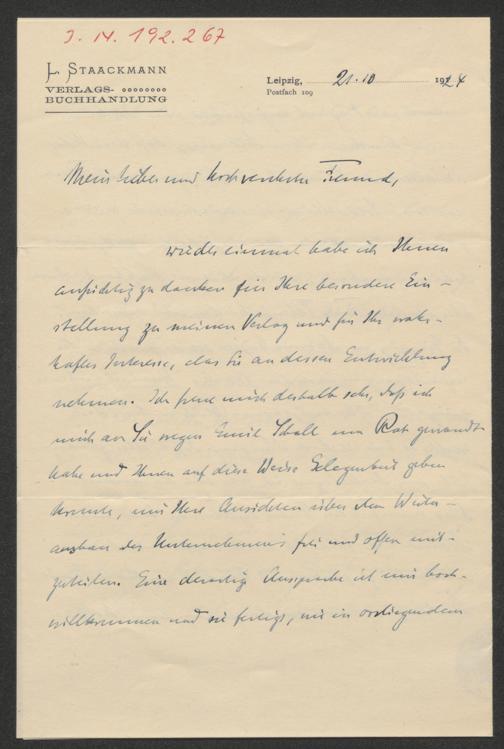 J. N. 192.267
L. STAACKMANN
VERLAGS-
BUCHHANDLUNG
Leipzig, 21.10 1924
Postfach 109
Mein lieber und hochverehrter Freund,
wieder einmal habe ich Ihnen
aufrichtig zu danken für Ihre besondere Ein-
stellung zu meinem Verlag und für Ihr wahr-
haftes Interesse, das Sie an dessen Entwicklung
nehmen. Ich freue mich deshalb sehr, daß ich
mich an Sie wegen Emil um Rat gewandt
habe und Ihnen auf diese Weise Gelegenheit geben
konnte, mir Ihre Ansichten über den Weiter-
ausbau des Unternehmens frei und offen mit-
zuteilen. Eine derartige Aussprache ist mir hoch-
willkommen und sie in vorliegendem